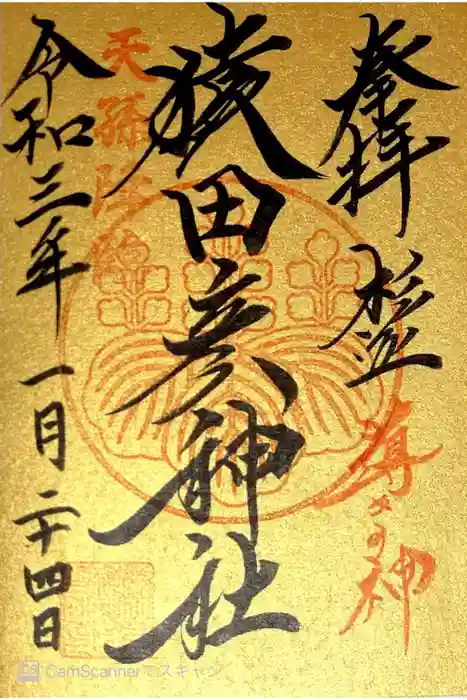 奉拝 杉並
導きの神
猿田彦神社
天孫降臨
令和三年一月二十四日
CamScannerでスキャン